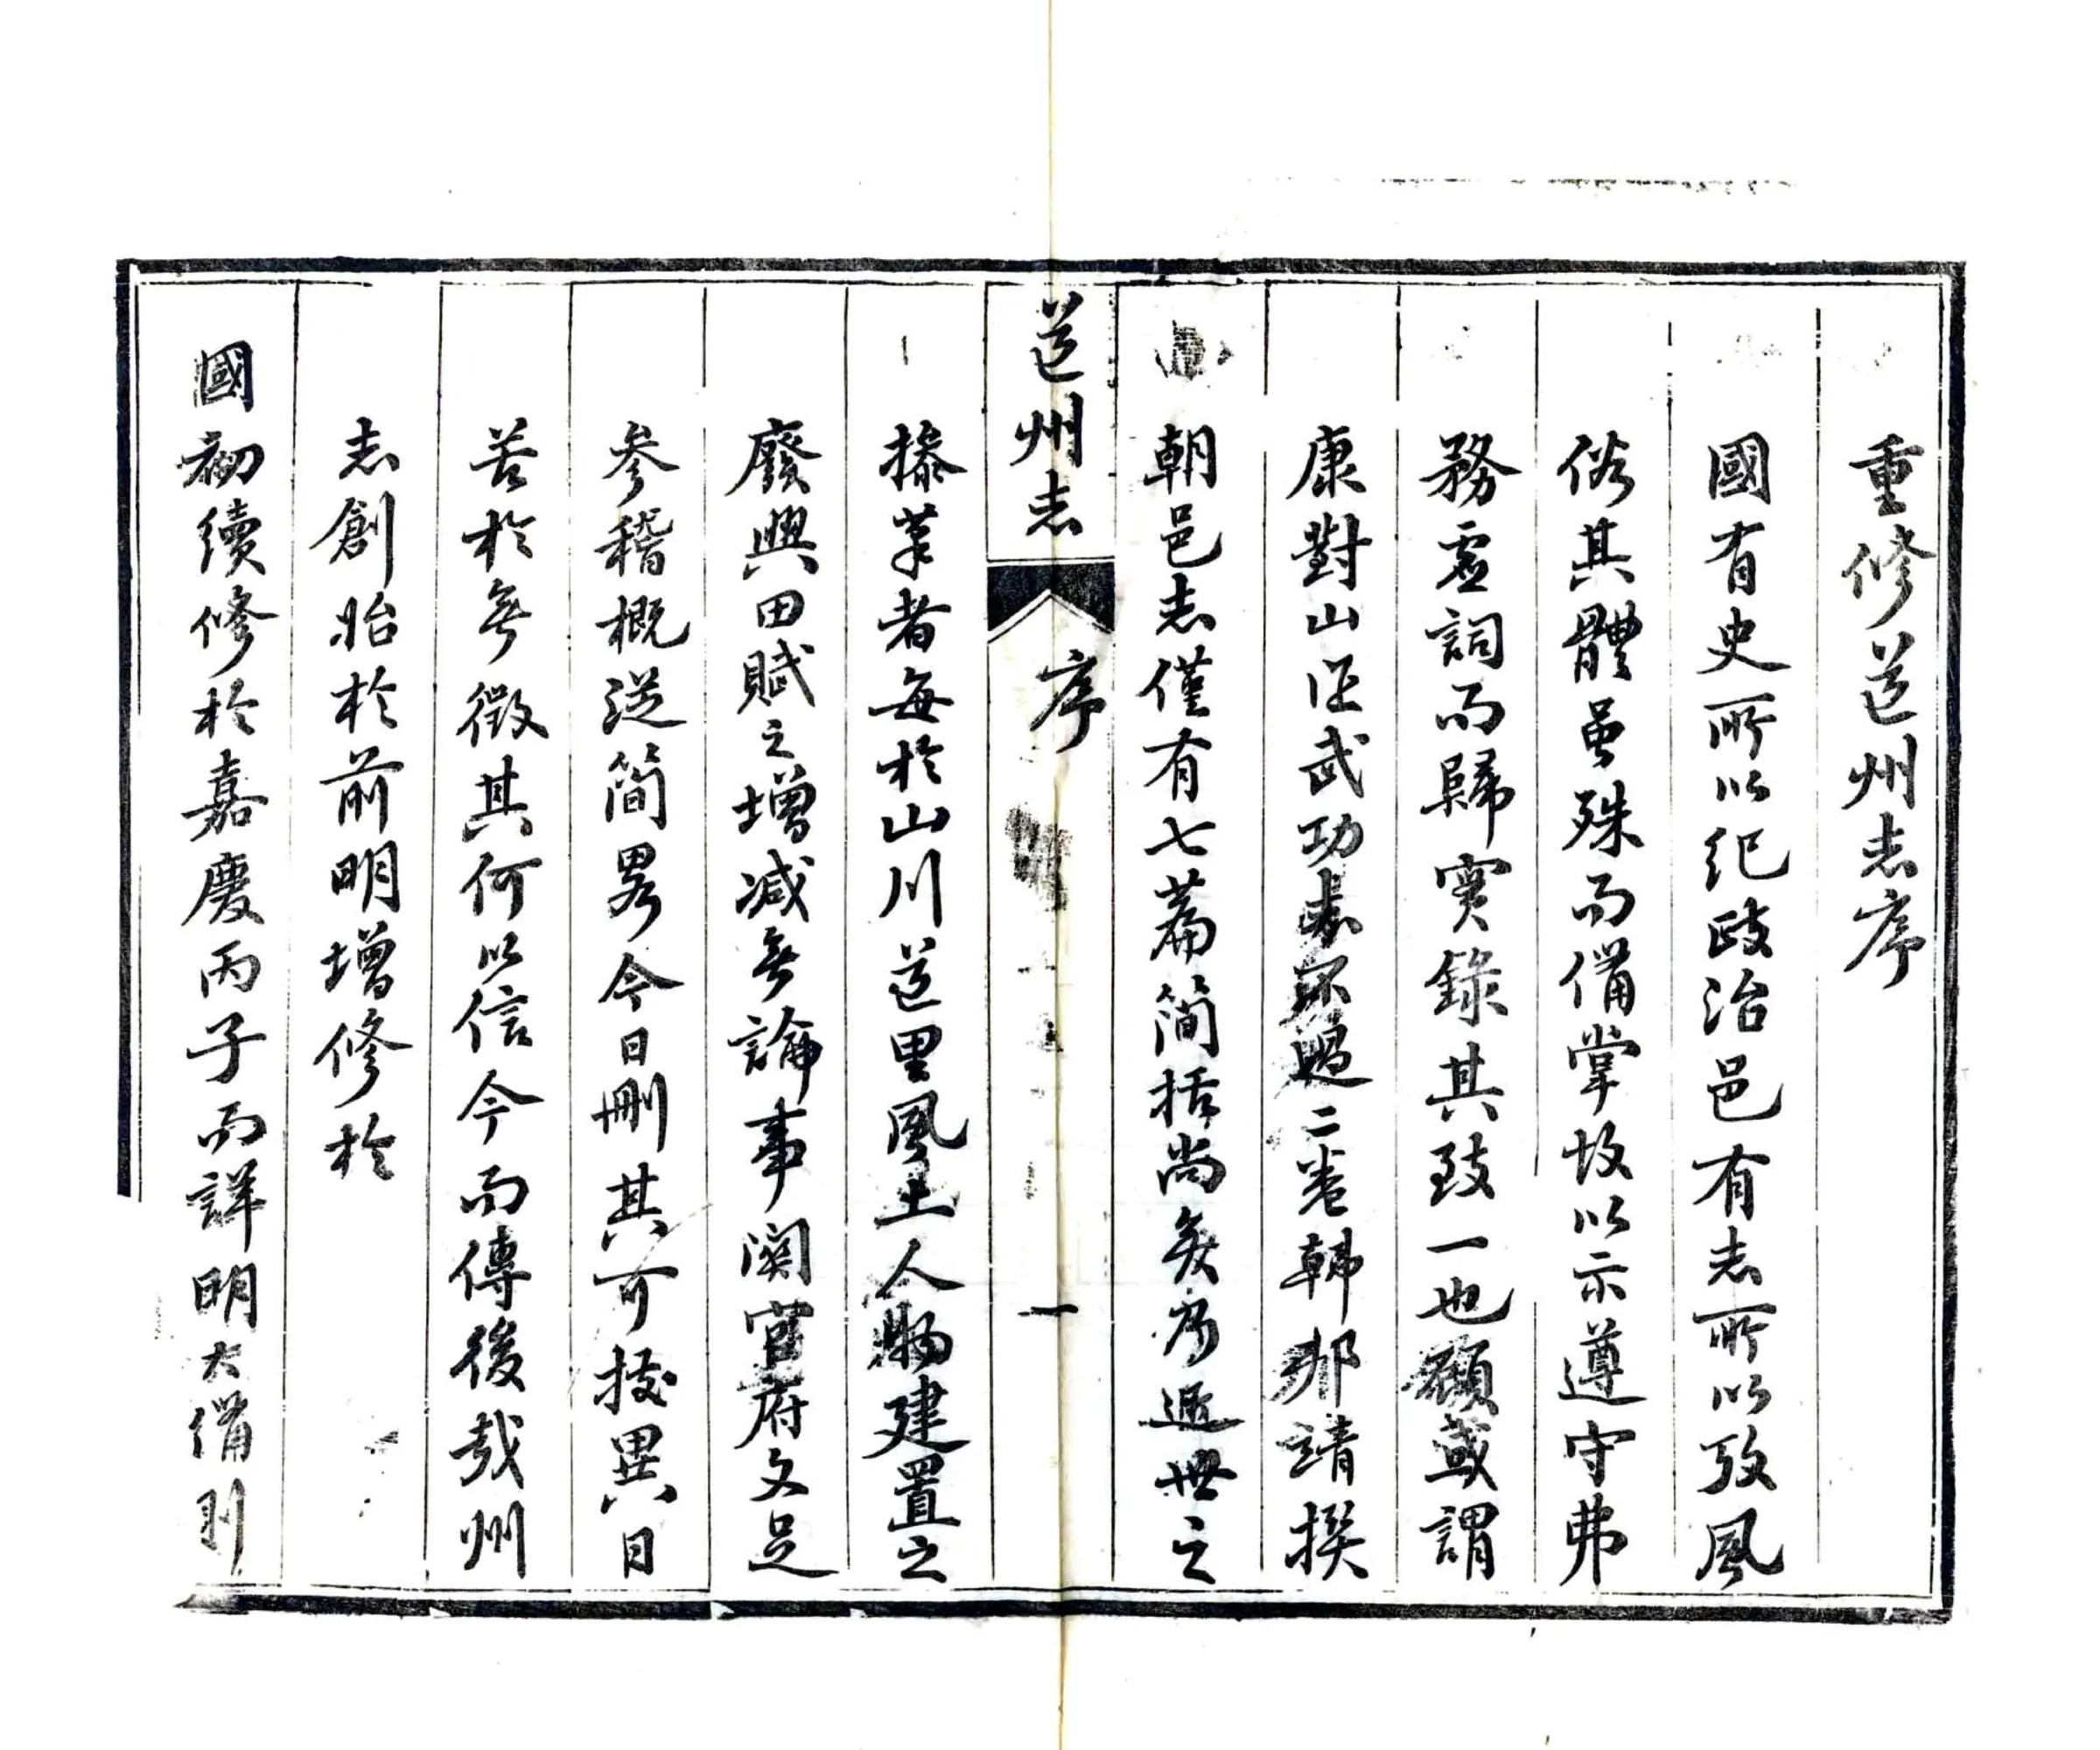 重修道州志序
國有史所以紀政治邑有志所以攷風
俗其體虽殊而備掌故以示遵守弗
務虛詞而歸實錄其致一也顧或謂
康對山作武功志不過二卷韓邦靖撰
朝邑志僅有七篇簡括尚矣乃近世之
道州志
序
一
操筆者每於山川道里風土人物建置之
廢興田賦之增減無論事関官府文足
參稽概從簡畧今日刪其可按異日
苦於無徵其何以信今而傳後哉州
志創始於前明增修於
國初續修於嘉慶丙子而詳明大備則